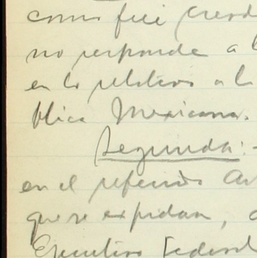 como fué cread
no responde a l
en lo relativo a la
blica Mexicana.
Segunda:-
en el referido Ar
que se expidan,
Ejecutivo Federal